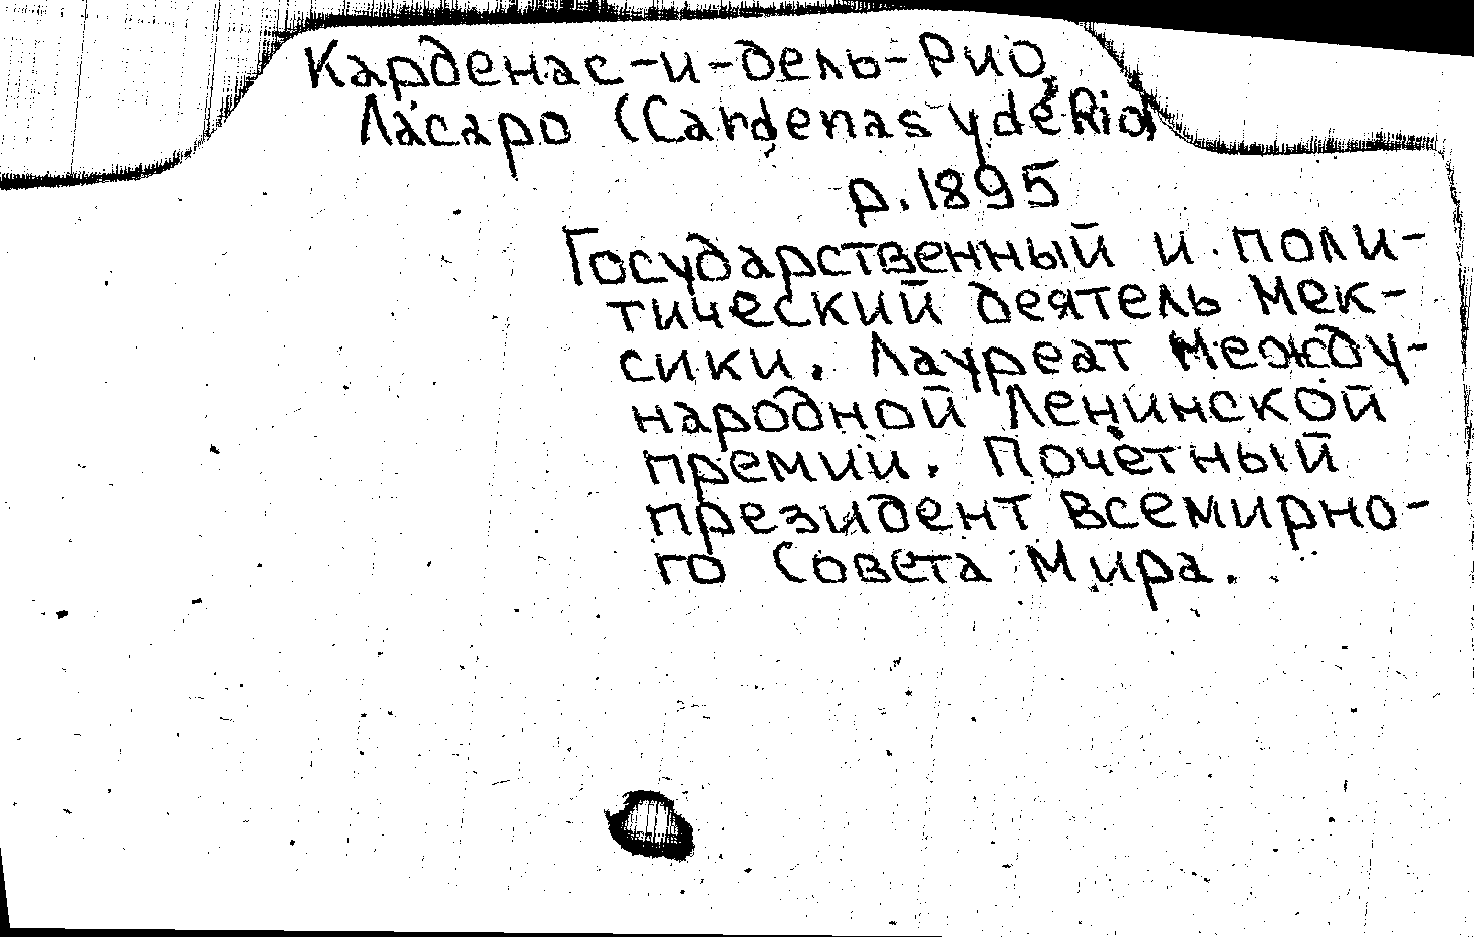 Карденас-и-дель-Рио,
Ласаро (Cardenas y de Rio)
р. 1895
Государственный и поли-
тический деятель Мек-
сики. Лауреат Между-
народной Ленинской
премии. Почётный
президент Всемирно-
го Совета Мира.